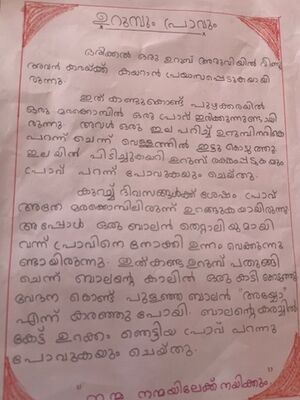 ഉറുമ്പും പ്രാവും
ഒരിക്കൽ ഒരു ഉറുമ്പ് അരുവിയിൽ വീണു
അവൻ കരയ്ക്ക് കയറാൻ പ്രയാസപ്പെടുകയായി
രുന്നു.
ഇത് കണ്ടുകൊണ്ട് പുഴക്കരയിൽ
ഒരു മരക്കൊമ്പിൽ ഒരു പ്രാവ് ഇരിക്കുന്നുണ്ടായി
രുന്നു. അവൾ ഒരു ഇല പറിച്ച് ഉറുമ്പിനരികെ
പറന്ന് ചെന്ന് വെള്ളത്തിൽ ഇട്ടു കൊടുത്തു.
ഇലയിൽ പിടിച്ചുകയറി ഉറുമ്പ് രക്ഷപ്പെടുകയും
പ്രാവ് പറന്ന് പോവുകയും ചെയ്തു.
കുറച്ച് ദിവസങ്ങൾക്ക് ശേഷം പ്രാവ്
അതേ മരക്കൊമ്പിലിരുന്ന് ഉറങ്ങുകയായിരുന്നു
അപ്പോൾ ഒരു ബാലൻ തെറ്റാലിയുമായി
വന്ന് പ്രാവിനെ നോക്കി ഉന്നം വെക്കുന്നു
ണ്ടായിരുന്നു. ഇത് കണ്ട ഉറുമ്പ് പതുങ്ങി
ചെന്ന് ബാലന്റെ കാലിൽ ഒരു കടി കൊടുത്തു
വേദന കൊണ്ട് പുളഞ്ഞ ബാലൻ "അയ്യോ"
എന്ന് കരഞ്ഞു പോയി. ബാലന്റെ കരച്ചിൽ
കേട്ട് ഉറക്കം ഞെട്ടിയ പ്രാവ് പറന്നു
പോവുകയും ചെയ്തു.
" നന്മ നന്മയിലേക്ക് നയിക്കും "